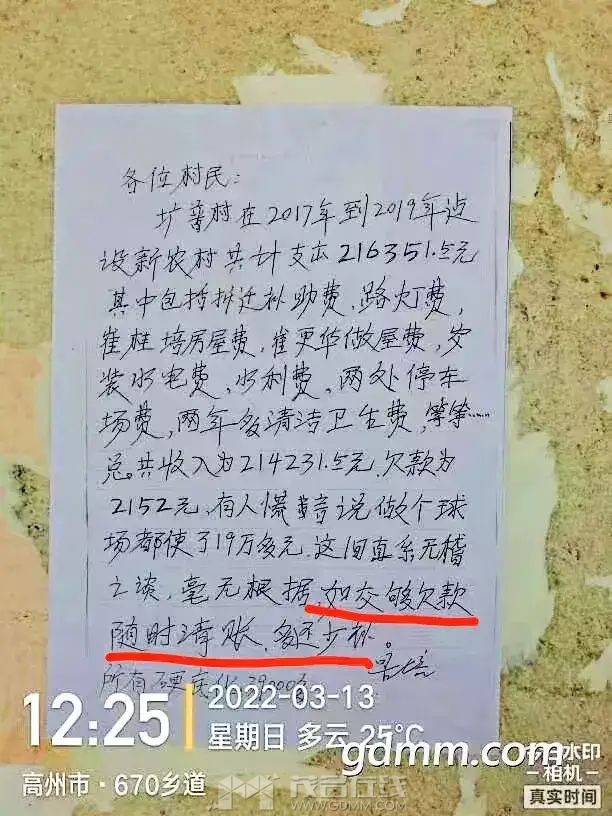 各位村民：
扩肾村在2017年到2019年建
设新农村共计支出216351.5元
其中包括拆迁补助费、路灯费,
崔桂培房屋费,崔更华做屋费,安
装水电费,水利费,两处停车
场费,两年多清洁卫生费,等等……
总共收入为214231.5元.欠款为
2152元,有人慌言说做个球
场都使了19万多元.这间直系无稽
之谈,毫无根据,如交够欠款
随时清账.多还少补。
所有硬底化
12:25
2022-03-13
星期日 多云 25°C
高州市·670乡道
茂名在线
WWW.GDMM.COM
gdmm.com
水印
相机
真实时间